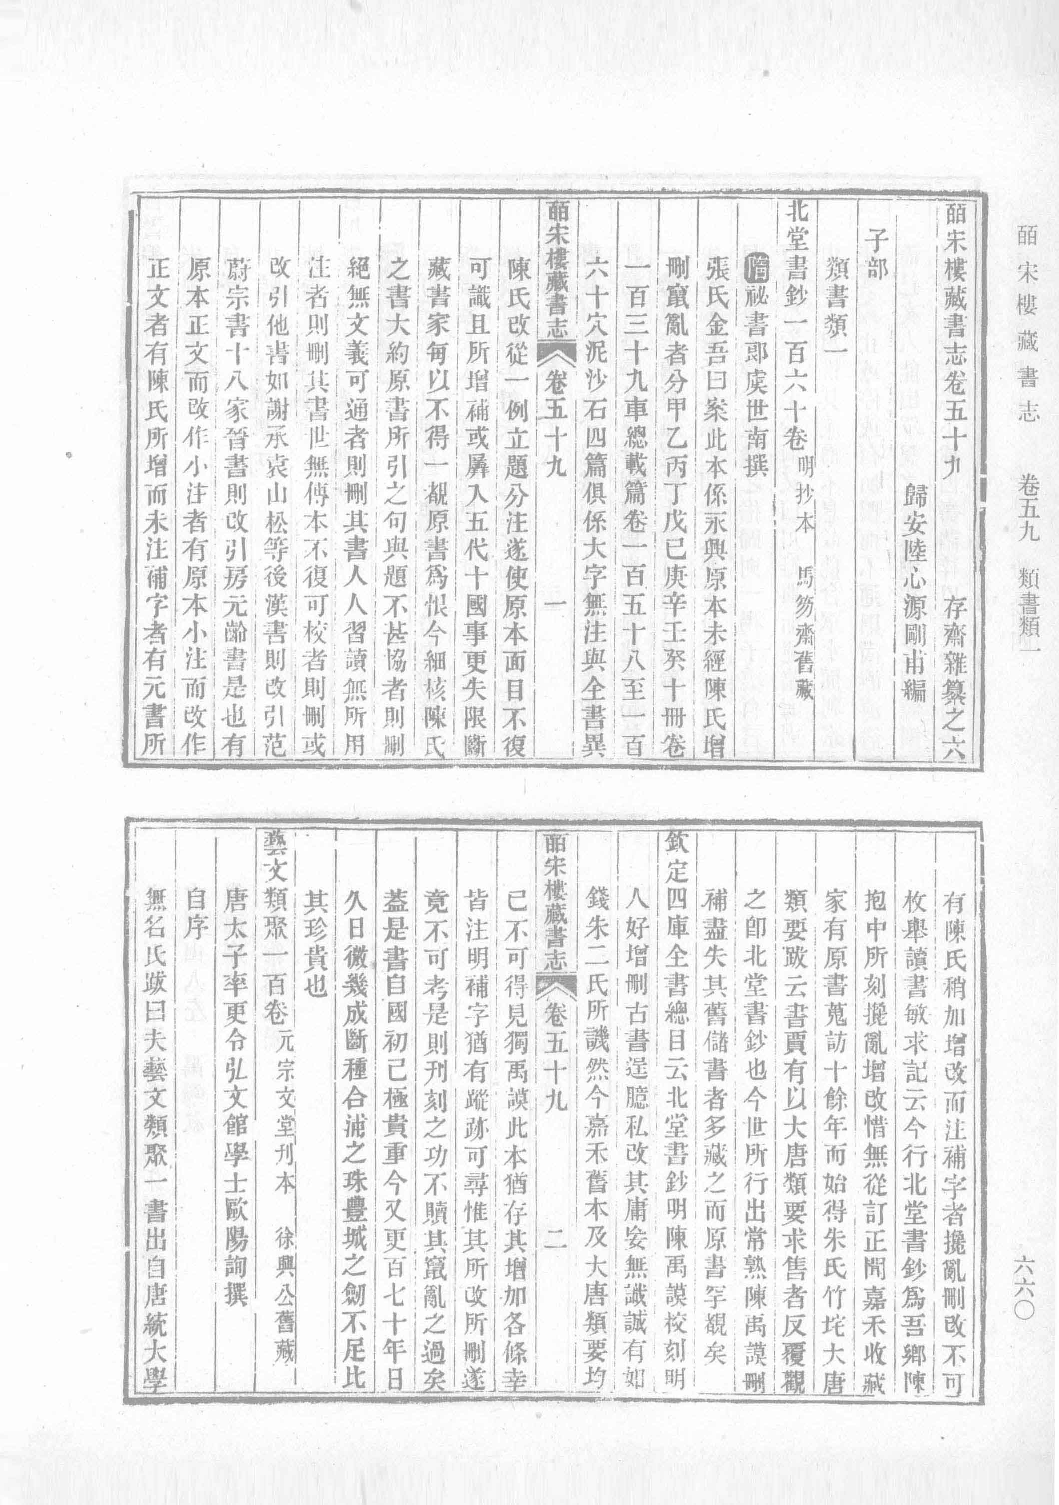 皕宋樓藏書志 卷五九 類書類一
六六〇
皕宋樓藏書志卷五十九 存齋雜纂之六
歸安陸心源剛甫編
子部
類書類一
北堂書鈔一百六十卷 明抄本 馬笏齋舊藏
隋祕書郎虞世南撰
張氏金吾曰案此本係永興原本未經陳氏增
刪竄亂者分甲乙丙丁戊己庚辛壬癸十冊卷
一百三十九車總載篇卷一百五十八至一百
六十穴泥沙石四篇俱係大字無注與全書異
皕宋樓藏書志 卷五十九 一
陳氏改從一例立題分注遂使原本面目不復
可識且所增補或羼入五代十國事更失限斷
藏書家每以不得一覩原書爲恨今細核陳氏
之書大約原書所引之句與題不甚協者則刪
絕無文義可通者則刪其書人人習讀無所用
注者則刪其書世無傳本不復可校者則刪或
改引他書如謝承袁山松等後漢書則改引范
蔚宗書十八家晉書則改引房元齡書是也有
原本正文而改作小注者有原本小注而改作
正文者有陳氏所增而未注補字者有元書所
有陳氏稍加增改而注補字者攙亂刪改不可
枚舉讀書敏求記云今行北堂書鈔爲吾鄉陳
抱中所刻攙亂增改惜無從訂正聞嘉禾收藏
家有原書蒐訪十餘年而始得朱氏竹垞大唐
類要跋云書賈有以大唐類要求售者反覆觀
之卽北堂書鈔也今世所行出常熟陳禹謨刪
補盡失其舊儲書者多藏之而原書罕覩矣
欽定四庫全書總目云北堂書鈔明陳禹謨校刻明
人好增刪古書逞臆私改其庸妄無識誠有如
錢朱二氏所譏然今嘉禾舊本及大唐類要均
皕宋樓藏書志 卷五十九 二
已不可得見獨禹謨此本猶存其增加各條幸
皆注明補字猶有蹤跡可尋惟其所改所刪遂
竟不可考是則刊刻之功不贖其竄亂之過矣
蓋是書自國初已極貴重今又更百七十年日
久日微幾成斷種合浦之珠豐城之劒不足比
其珍貴也
藝文類聚一百卷 元宗文堂刊本 徐興公舊藏
唐太子率更令弘文館學士歐陽詢撰
自序
無名氏跋曰夫藝文類聚一書出自唐統大學